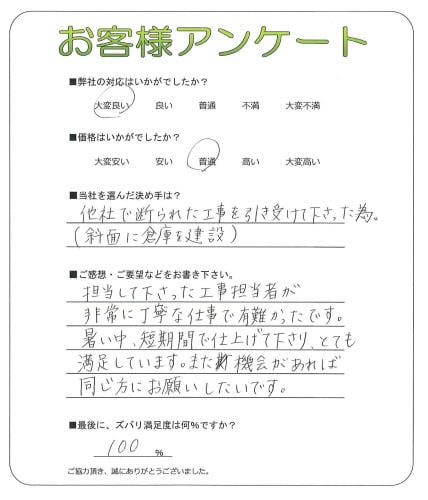 お客様アンケート
■弊社の対応はいかがでしたか？
大変良い 良い 普通 不満 大変不満
■価格はいかがでしたか？
大変安い 安い 普通 高い 大変高い
■当社を選んだ決め手は？
他社で断られた工事を引き受けて下さった為。
(斜面に倉庫を建設)
■ご感想・ご要望などをお書き下さい。
担当して下さった工事担当者が
非常に丁寧な仕事で有難かったです。
暑い中、短期間で仕上げて下さり、とても
満足しています。また機会があれば
同じ方にお願いしたいです。
■最後に、ズバリ満足度は何％ですか？
100 %
ご協力頂き、誠にありがとうございました。